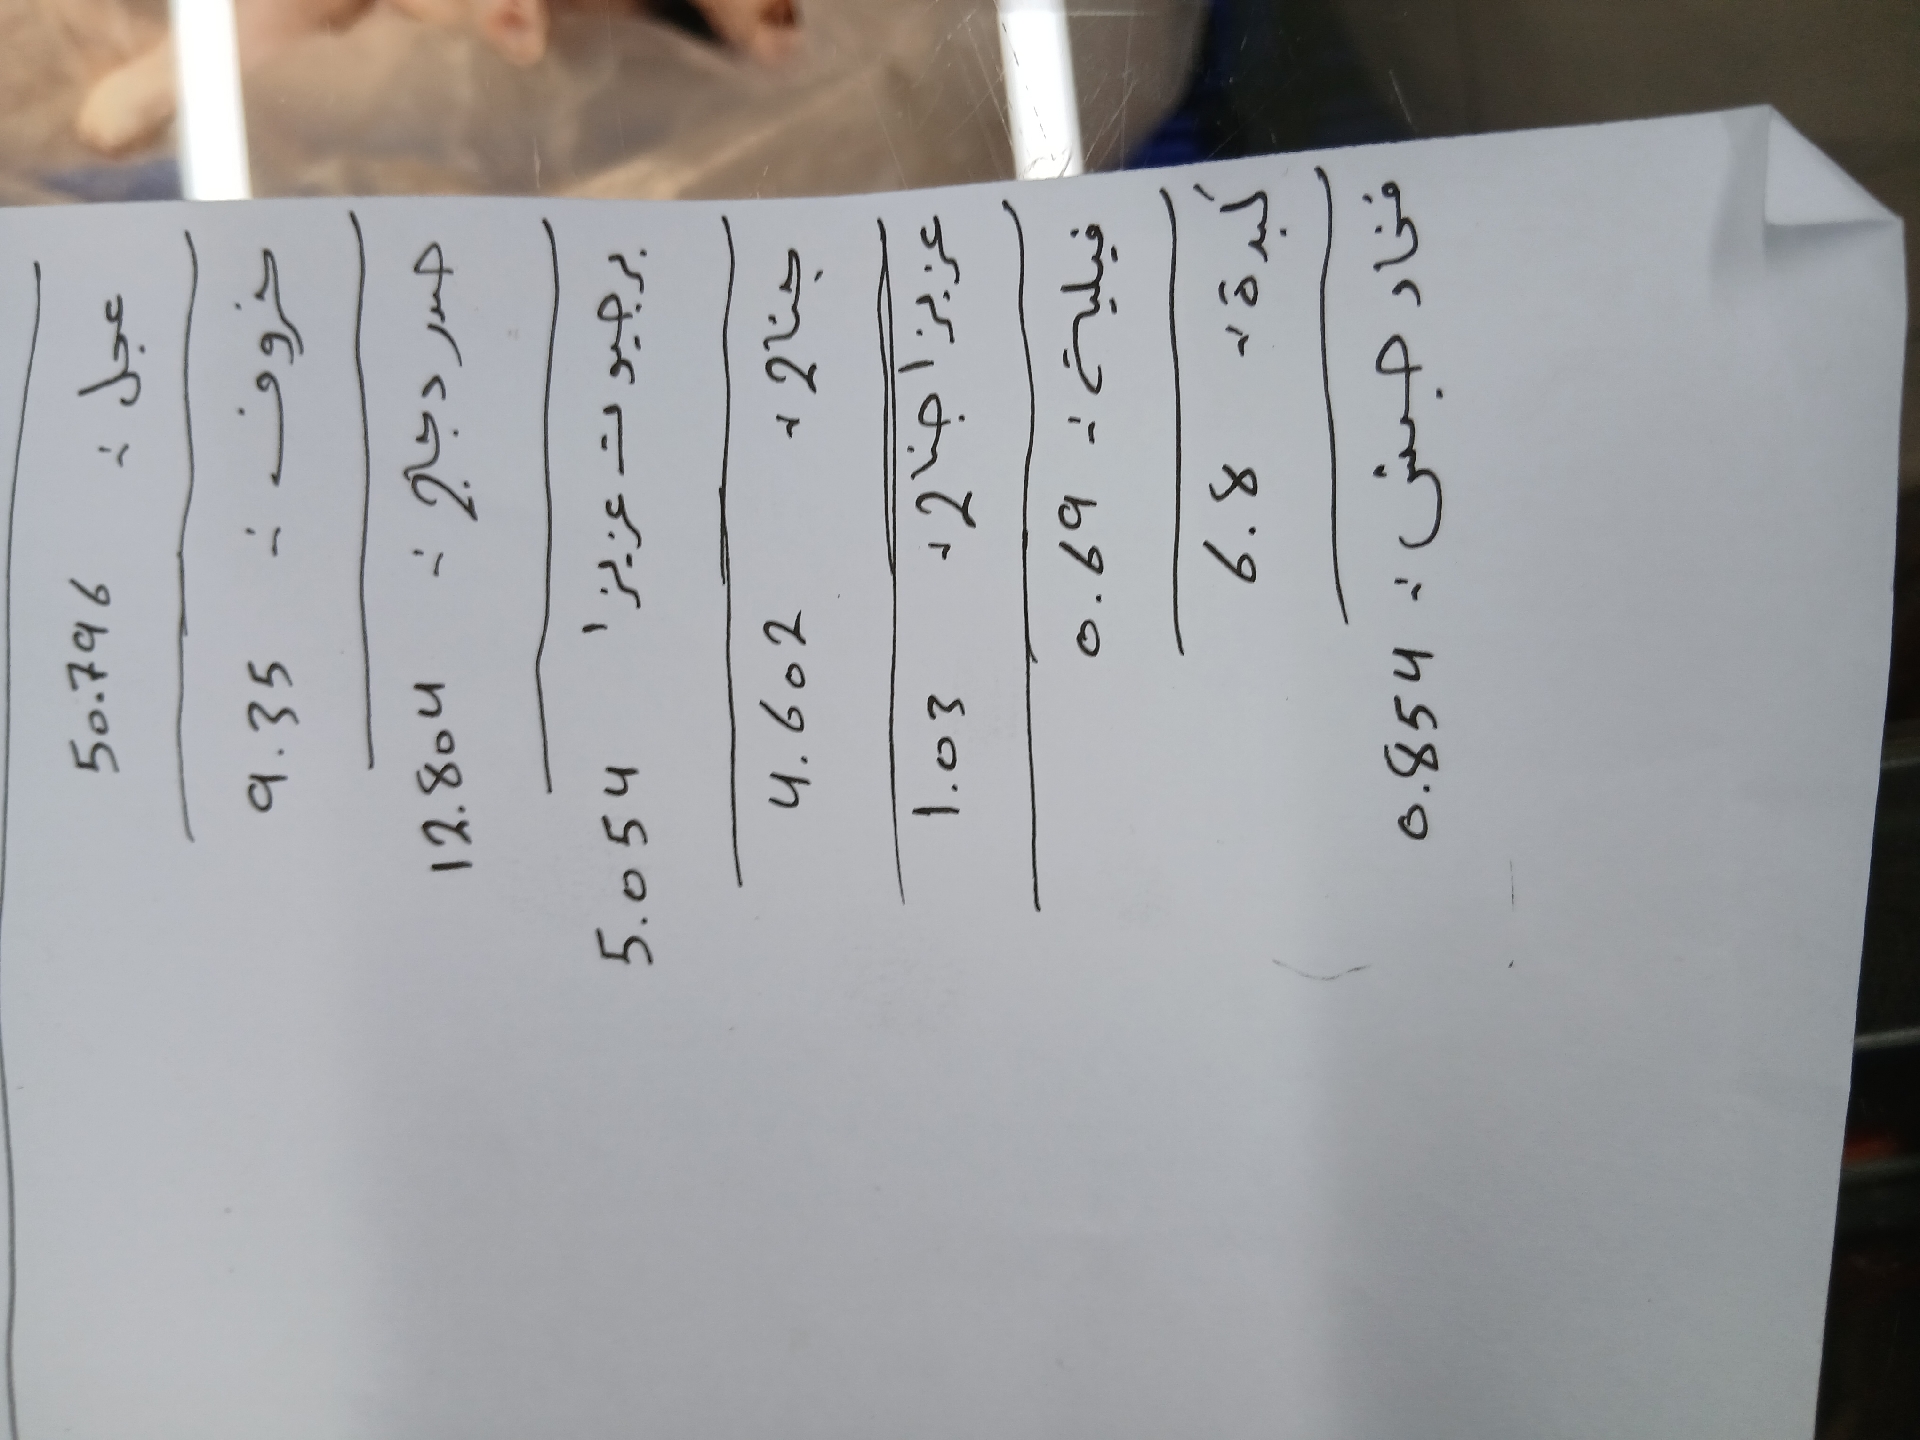 عجل : 50.796
خروف : 9.35
صدر دجاج : 12.804
برجيوت عزيزا 5.054
جناح : 4.602
عزيزا جناح : 1.03
فيليت : 0.69
كبدة : 6.8
فخاد حبش : 0.854